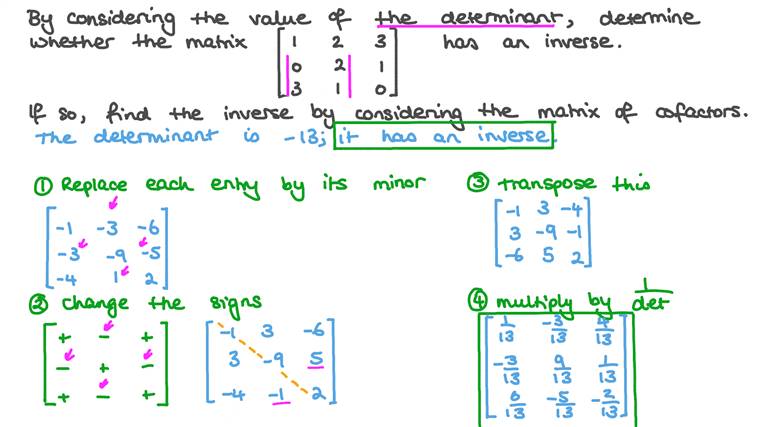 By considering the value of the determinant, determine
whether the matrix [1 2 3 has an inverse.
0 2 1
3 1 0]
If so, find the inverse by considering the matrix of cofactors.
The determinant is -13; it has an inverse.
① Replace each entry by its minor
-1 -3 -6
-3 -9 -5
-4 1 2
② change the signs
+ - +
- + -
+ - +
-1 3 -6
3 -9 5
-4 -1 2
③ transpose this
-1 3 -4
3 -9 -1
-6 5 2
④ multiply by 1/det
1/13 -3/13 4/13
-3/13 9/13 1/13
6/13 -5/13 -2/13